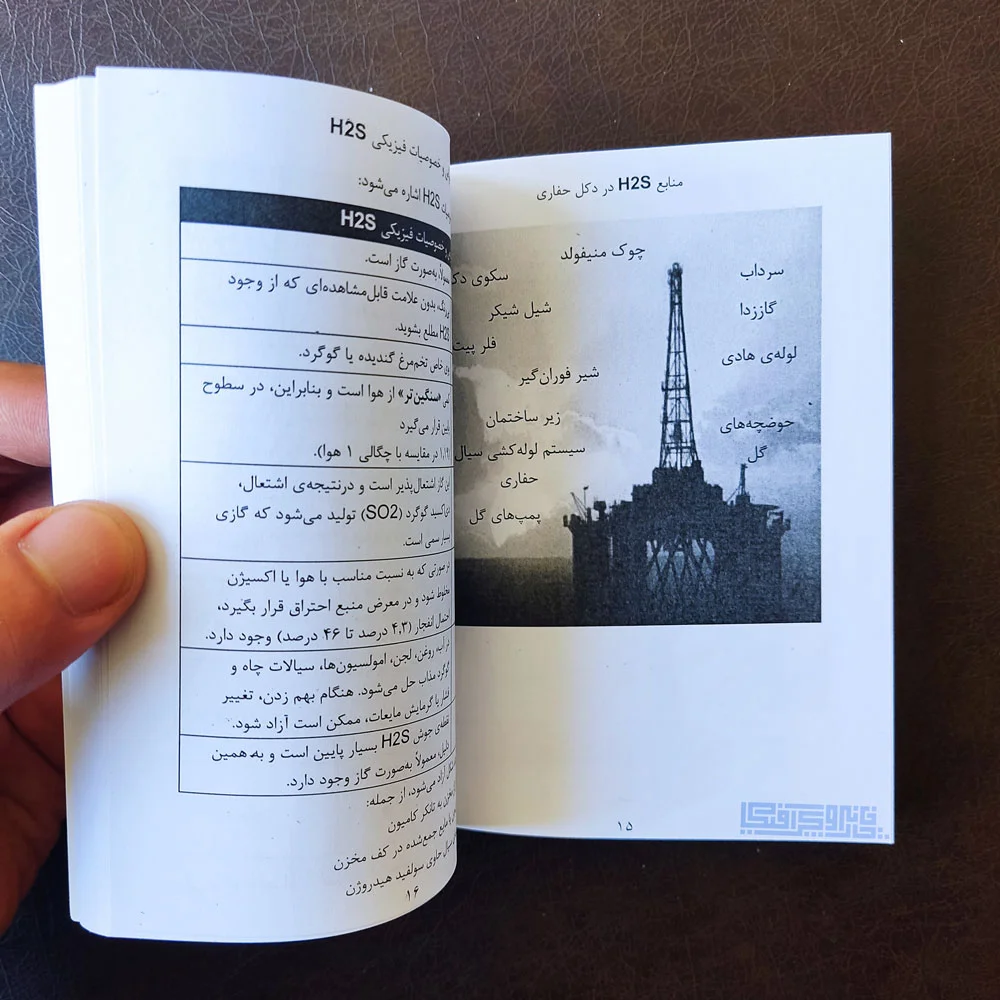 منابع H2S در دکل حفاری
چوک منیفولد
سکوی
شیل شیکر
فلر پیت
شیر فوران‌گیر
زیر ساختمان
سیستم لوله‌کشی سیال
حفاری
پمپ‌های گل
سرداب
گاززدا
لوله‌ی هادی
حوضچه‌های
گل
۱۵
و خصوصیات فیزیکی H2S
H2S اشاره می‌شود:
و خصوصیات فیزیکی H2S
معمولاً، به‌صورت گاز است.
بدون علامت قابل‌مشاهده‌ای که از وجود
H2S مطلع بشوید.
بوی خاص تخم‌مرغ گندیده یا گوگرد.
«سنگین‌تر» از هوا است و بنابراین، در سطوح
پایین قرار می‌گیرد
در مقایسه با چگالی ۱ هوا).
این گاز اشتعال‌پذیر است و درنتیجه‌ی اشتعال،
دی‌اکسید گوگرد (SO2) تولید می‌شود که گازی
بسیار سمی است.
در صورتی که به نسبت مناسب با هوا یا اکسیژن
مخلوط شود و در معرض منبع احتراق قرار بگیرد،
احتمال انفجار (۴,۳ درصد تا ۴۶ درصد) وجود دارد.
در آب، روغن، لجن، امولسیون‌ها، سیالات چاه و
گوگرد مذاب حل می‌شود. هنگام بهم زدن، تغییر
فشار یا گرمایش مایعات، ممکن است آزاد شود.
نقطه‌ی جوش H2S بسیار پایین است و به همین
دلیل، معمولاً به‌صورت گاز وجود دارد.
آزاد می‌شود، از جمله:
مخزن به تانکر کامیون
یا مایع جمع‌شده در کف مخزن
سیال حاوی سولفید هیدروژن
۱۶